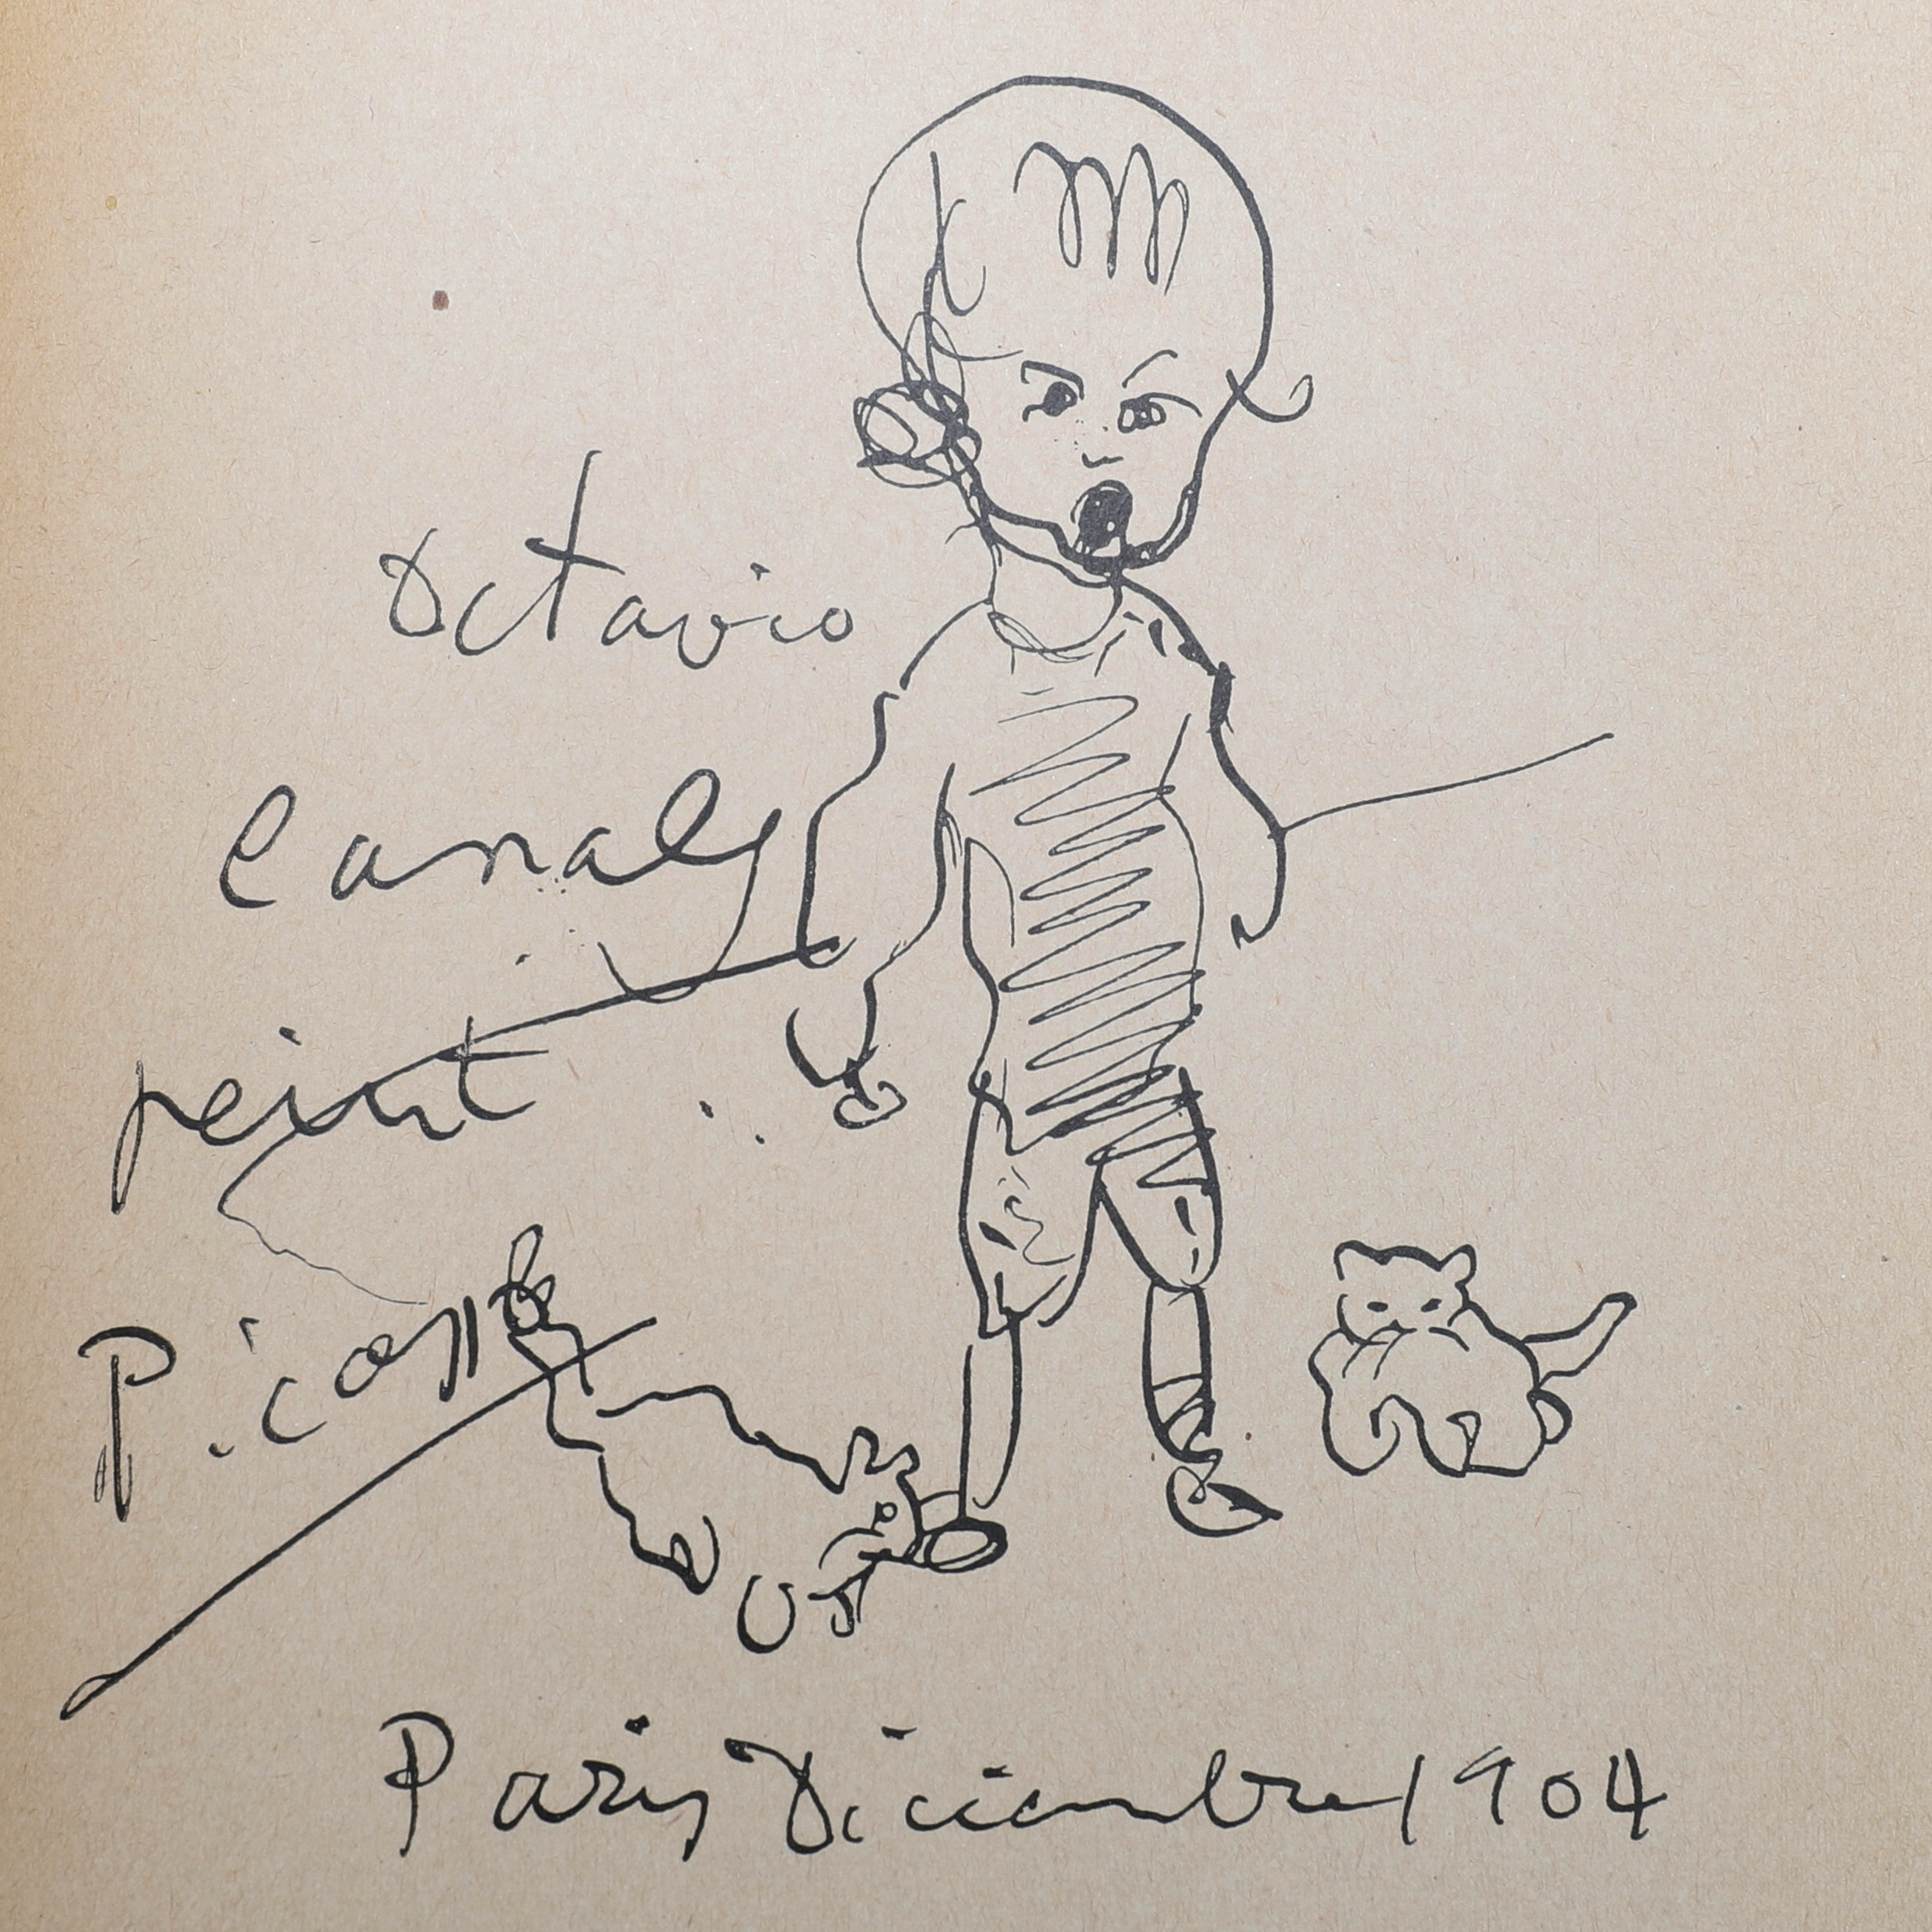 Octavio
Canals
peint
Picasso
Paris Diciembre 1904